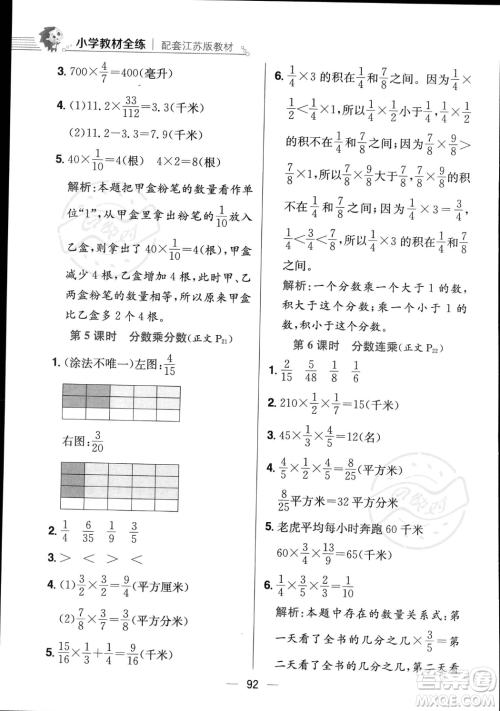 小学教材全练 配套江苏版教材
3. 700×4/7=400(毫升)
4. (1)11.2×33/112=3.3(千米)
(2)11.2-3.3=7.9(千米)
5. 40×1/10=4(根) 4×2=8(根)
解析:本题把甲盒粉笔的数量看作单
位“1”,从甲盒里拿出1/10放入乙盒,
乙盒的数量增加了40×1/10=4(根),甲盒
减少4根,乙盒增加4根,甲盒和
乙盒粉笔的数量相等,原来甲盒比
乙盒多2个4根。
第5课时 分数乘分数(正文P21)
1. (涂法不唯一)左图:4/15
右图:3/20
2. 1/4 1/6 5/54 4/35
3. > < > <
4. (1)2/3×2/3=4/9(平方厘米)
(2)2/3×3/8=1/4(平方分米)
5. 15/16×1/3+1/4=9/16
6. 1/4×3的积在1/4和3之间。因为1/4×
1/2<1/4×1,所以1/4×1/2<1/4,1/4×1/2
的积不在1/4和1/2之间。因为7/8×9/8>
7/8×1,所以7/8×9/8>7/8,7/8×9/8的积
在7/8和9/8之间。
解析:一个分数乘一个大于1的数,
积大于这个分数;乘一个小于1的
数,积小于这个分数。
第6课时 分数连乘(正文P22)
1. 2/15 5/48 1/8 1/6
2. 210×1/2×1/7=15(千米)
3. 45×1/3×4/5=12(名)
4. 4/5×2/3×3/5=8/25(平方千米)
8/25平方千米=32公顷
5. 老虎平均每小时奔跑60千米
60×3/4×4/3=60(千米)
6. 1/4×2/3×3/5=1/10
解析:本题中存在的数量关系式:第
一天看了全书的几分之几×3/5=第
二天看了全书的几分之几,第二天看
92